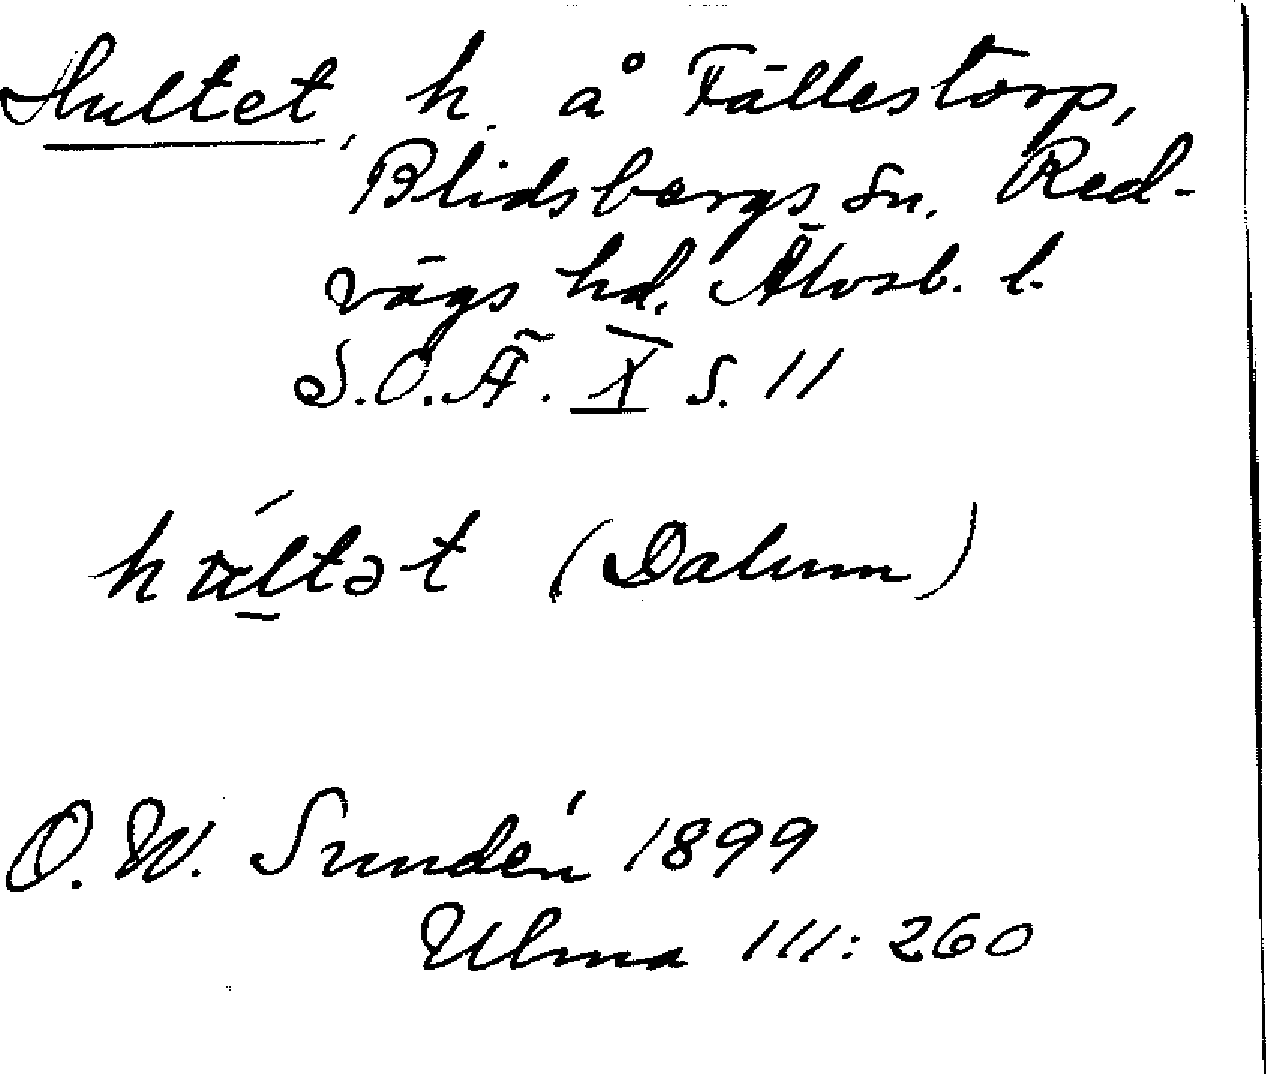 Hultet, h. å Fällestorp,
Blidsbergs sn. Red-
vägs hd. Älvsb. l.
S.O.Ä. X s. 11
(Dalum)
O. W. Sundén 1899
Ulma 111: 260